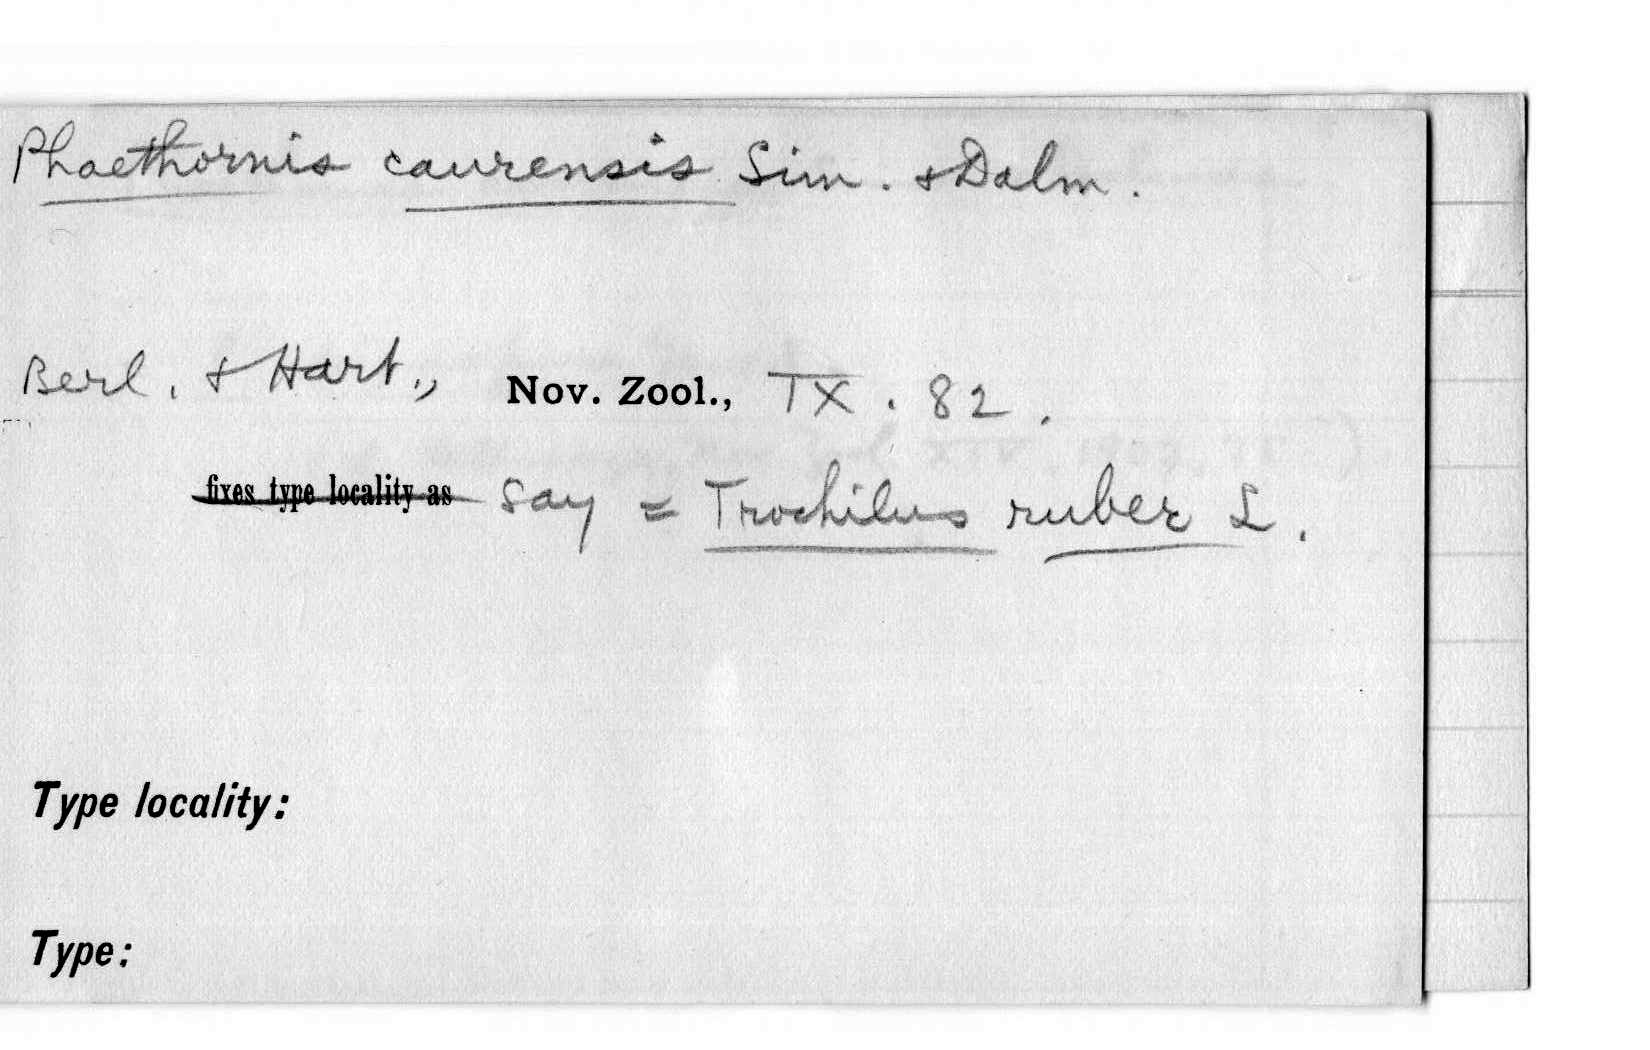 Phaethornis caurensis Sim. & Dalm.
Berl. & Hart., Nov. Zool., IX. 82.
fixes type locality as say = Trochilus ruber L.
Type locality:
Type: